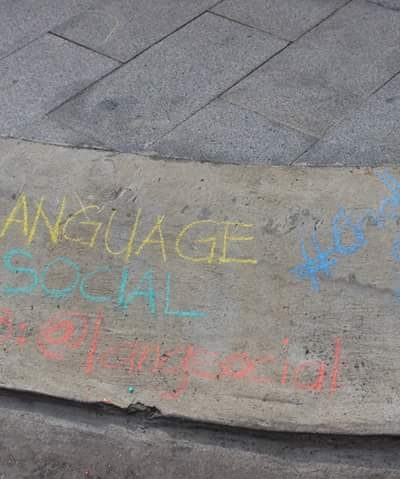 ANGUAGE
SOCIAL
: @langsocial